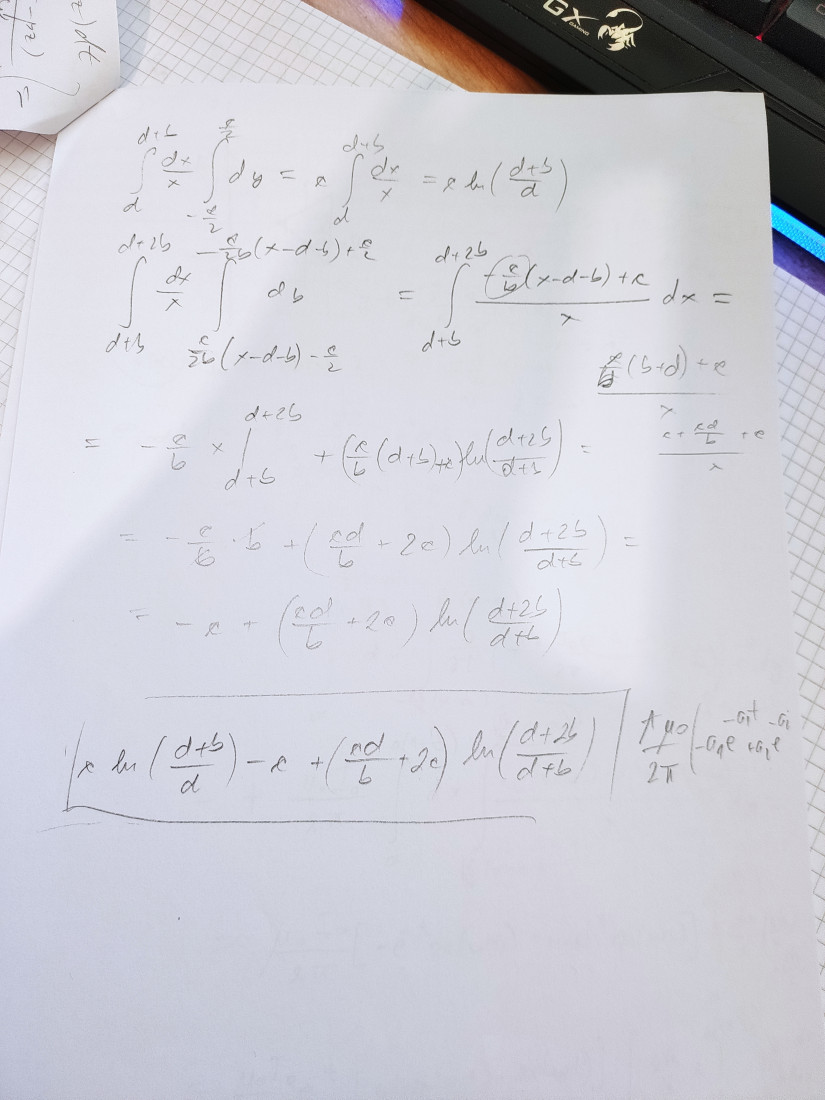 GX GAMING
∫_{d}^{d+b} dx/x ∫_{-c/2}^{c/2} dy = c ∫_{d}^{d+b} dx/x = c ln((d+b)/d)
∫_{d+b}^{d+2b} dx/x ∫_{c/2b(x-d-b)-c/2}^{-c/2b(x-d-b)+c/2} db = ∫_{d+b}^{d+2b} (-c/b(x-d-b)+c)/x dx =
(c/b(b+d)+c)/x
= -c/b x |_{d+b}^{d+2b} + (c/b(d+b)+c) ln((d+2b)/(d+b)) =
(c+cd/b+c)/x
= -c/b · b + (cd/b + 2c) ln((d+2b)/(d+b)) =
= -c + (cd/b + 2c) ln((d+2b)/(d+b))
c ln((d+b)/d) - c + (cd/b + 2c) ln((d+2b)/(d+b))
μ0/2π